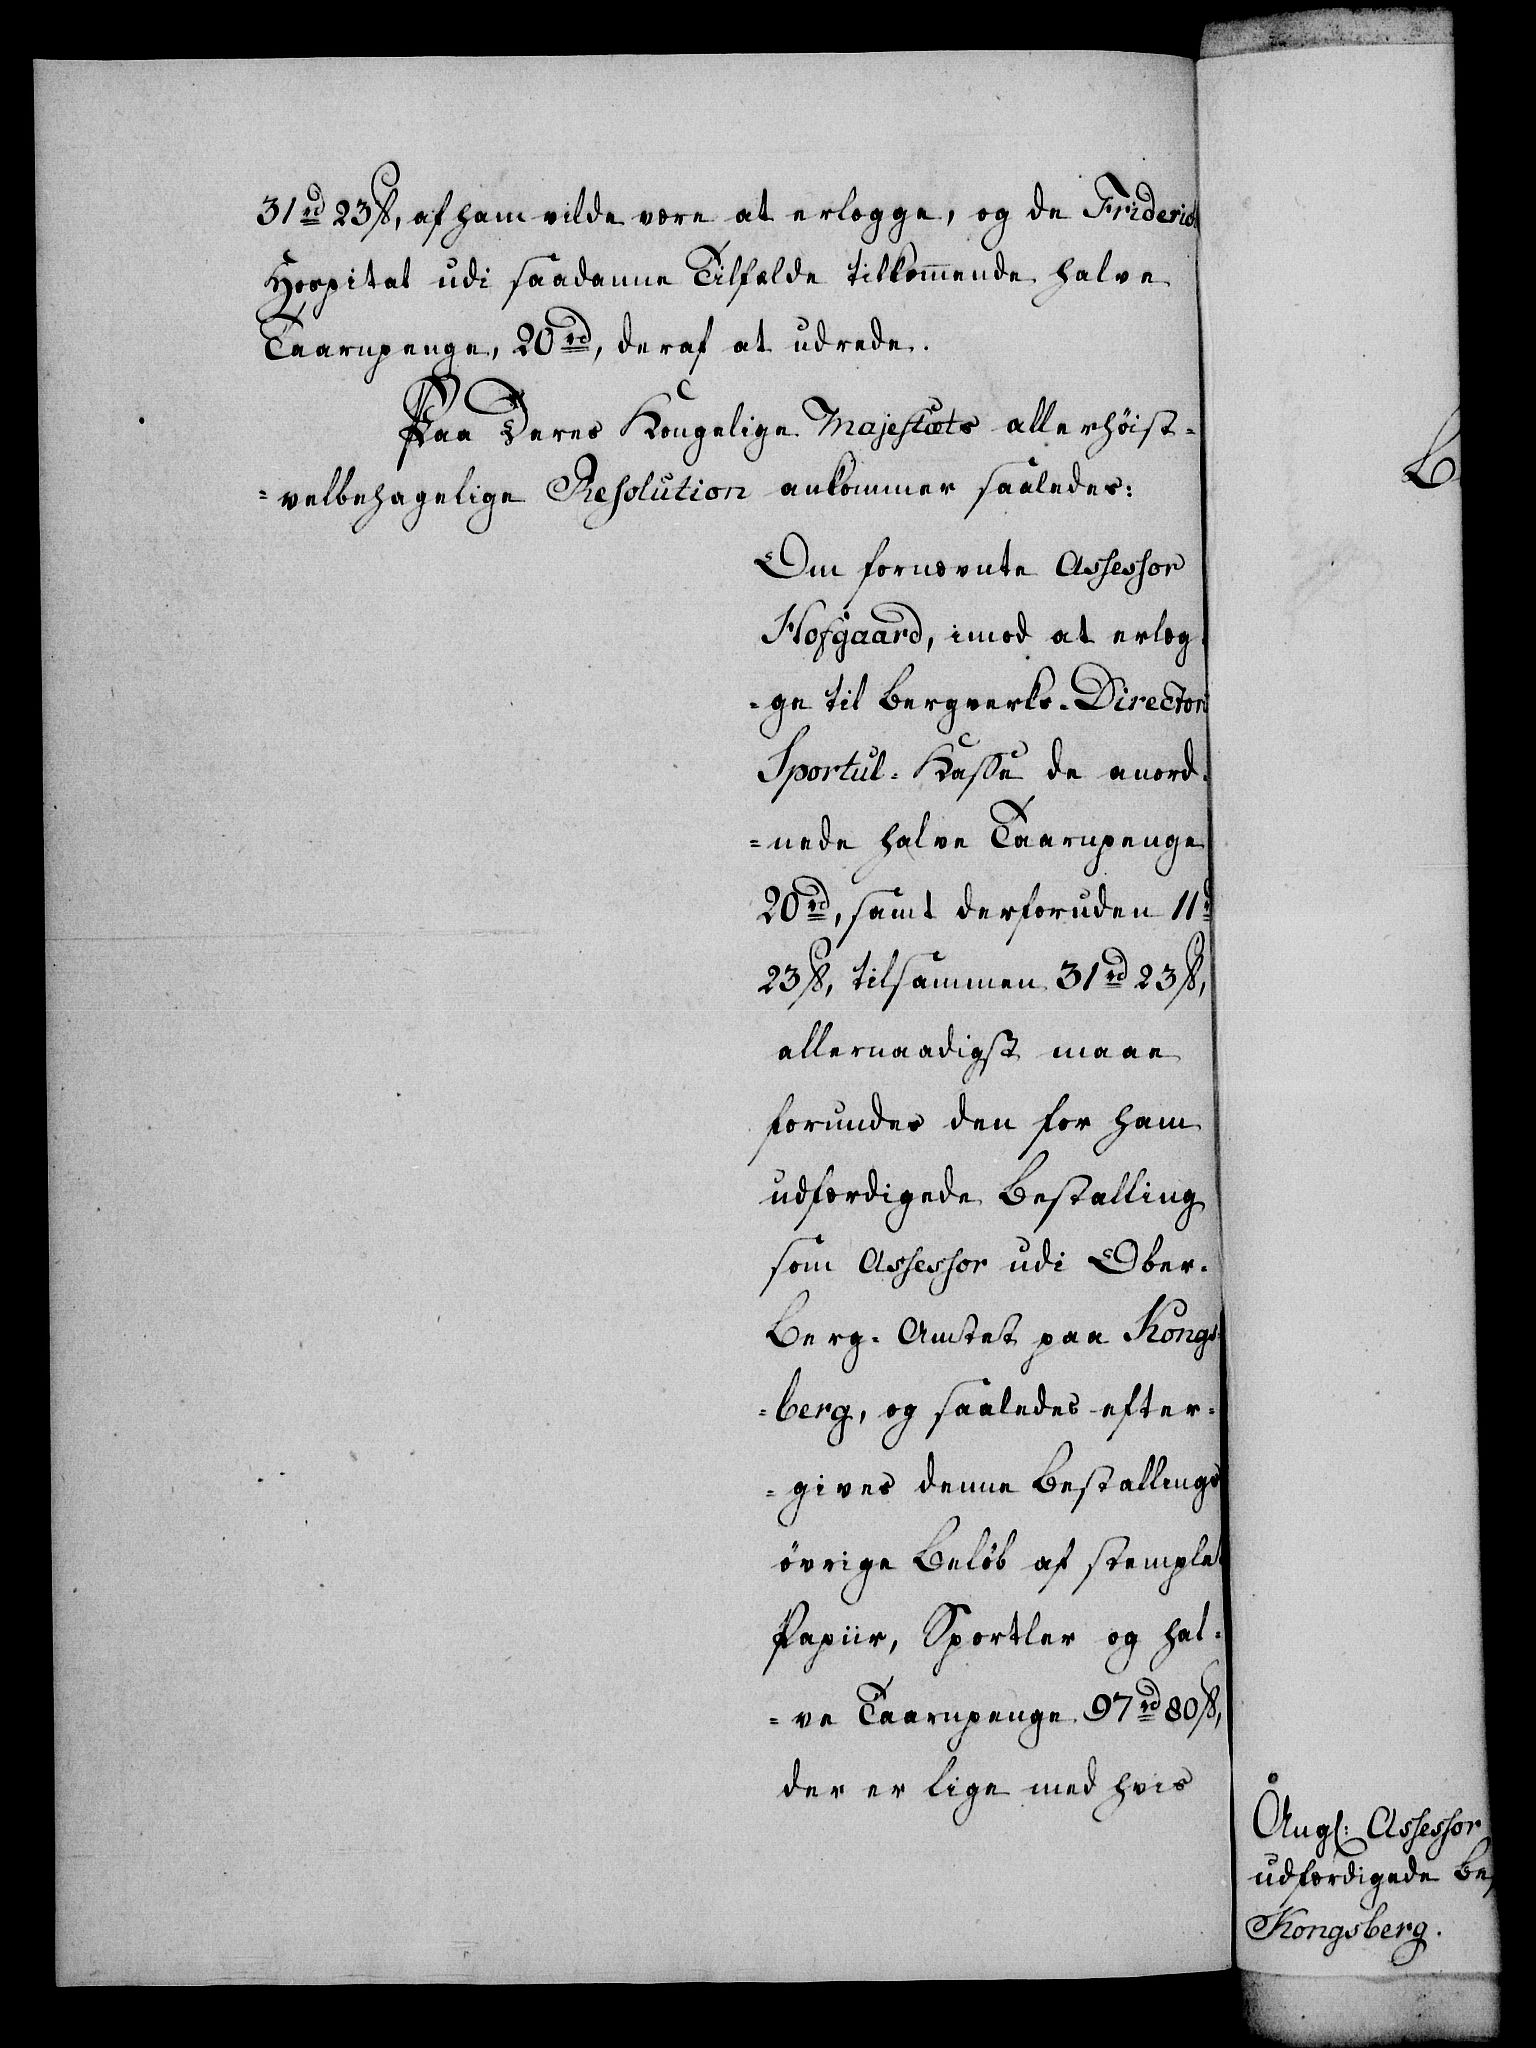 31 rd 23 ß, af ham vilde være at erlægge, og de Friderichs
Hospital udi saadanne Tilfælde tilkommende halve
Taarnpenge, 20 rd, deraf at udrede.
Paa Deres Kongelige Majestæts allerhöist-
=velbehagelige Resolution ankommer saaledes:
Om fornævnte Assessor
Hofgaard, imod at erlæg-
=ge til Bergverks-Directori
Sportul-Kasse de anord-
=nede halve Taarnpenge
20 rd, samt derforuden 11 rd
23 ß, tilsammen 31 rd 23 ß,
allernaadigst maae
forundes den for ham
udfærdigede Bestalling
som Assessor udi Ober-
Berg-Amtet paa Kongs-
=berg, og saaledes efter-
=gives denne Bestallings
övrige Belöb af stemplet
Papiir, Sportler og hal-
=ve Taarnpenge 97 rd 80 ß,
der er lige med hvis
B
Ang: Assessor
udfærdigede Bes
Kongsberg.